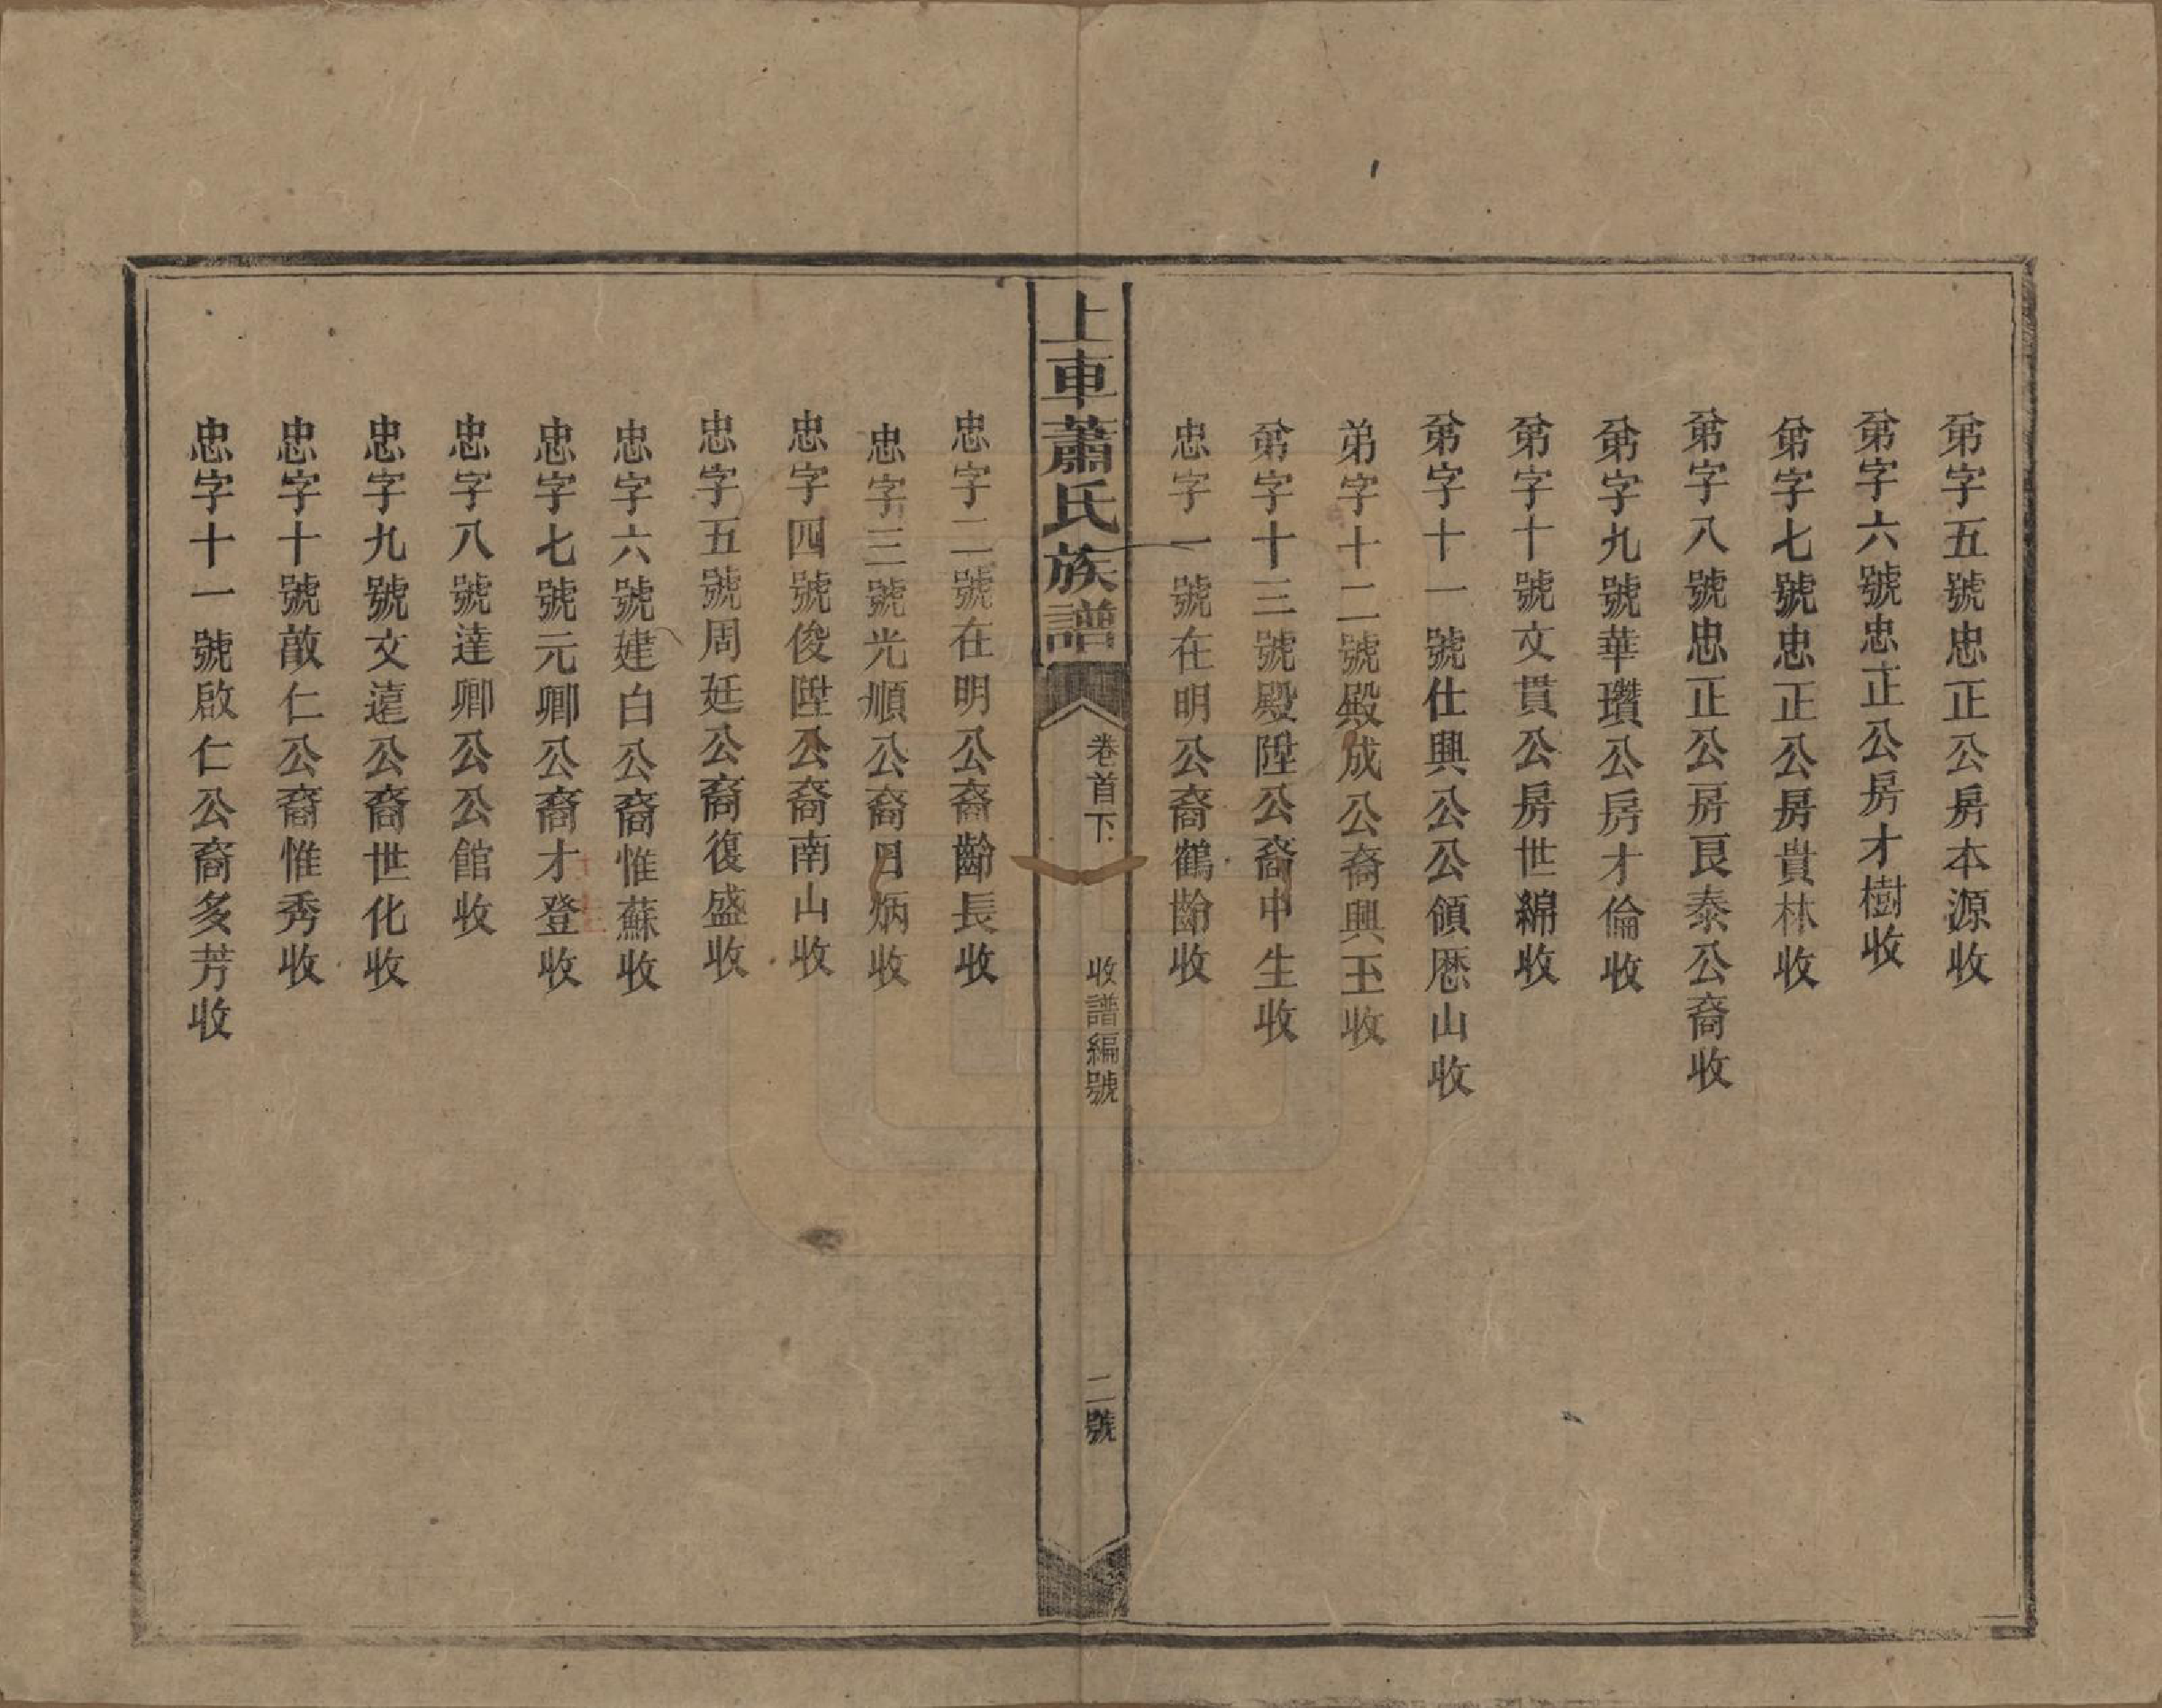 弟字五號忠正公房本源收
弟字六號忠正公房才樹收
弟字七號忠正公房貴林收
弟字八號忠正公房艮泰公裔收
弟字九號華瓚公房才倫收
弟字十號文貫公房世綿收
弟字十一號仕興公公領愿山收
弟字十二號殿成公裔興玉收
弟字十三號殿陞公裔申生收
忠字一號在明公裔鶴齡收
上車蕭氏族譜
卷首下
收譜編號
二號
忠字二號在明公裔齡長收
忠字三號光順公裔月炳收
忠字四號俊陞公裔南山收
忠字五號周廷公裔復盛收
忠字六號建白公裔惟蘇收
忠字七號元卿公裔才登收
忠字八號達卿公公館收
忠字九號文遠公裔世化收
忠字十號啟仁公裔惟秀收
忠字十一號啟仁公裔多芳收